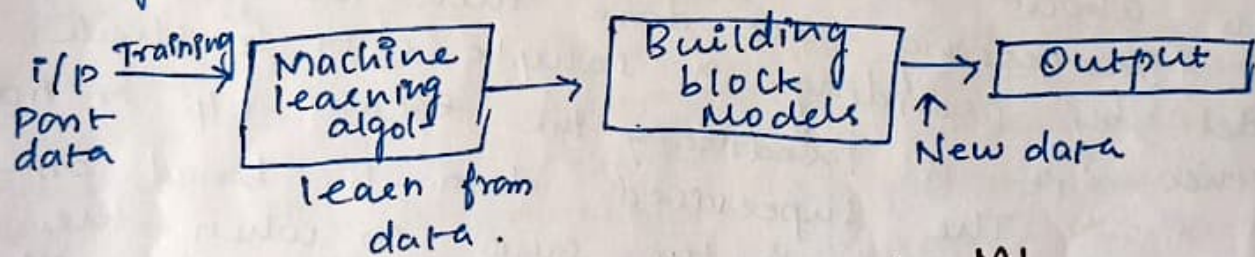 i/p
Past
data
Training
Machine
learning
algos
learn from
data.
Building
block
Models
New data
Output